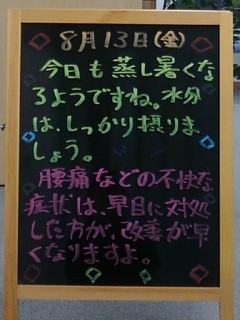 8月13日(金)
今日も蒸し暑くな
るようですね。水分
は、しっかり摂りま
しょう。
腰痛などの不快な
症状は、早目に対処
した方が、改善が早
くなりますよ。